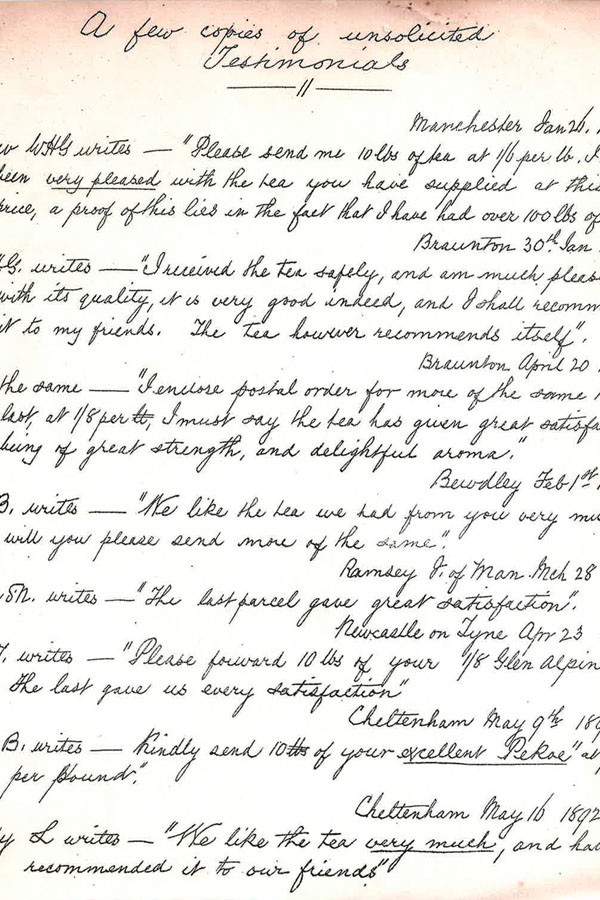 A few copies of unsolicited
Testimonials
Manchester Jan 26.
W.H.G writes — "Please send me 10 lbs of tea at 1/6 per lb. I
been very pleased with the tea you have supplied at this
price, a proof of this lies in the fact that I have had over 100 lbs of
Braunton 30th Jan
G. writes — "I received the tea safely, and am much please
with its quality, it is very good indeed, and I shall recomm
it to my friends. The tea however recommends itself".
Braunton April 20
the same — "I enclose postal order for more of the same
last, at 1/8 per lb, I must say the tea has given great satisfa
being of great strength, and delightful aroma."
Bewdley Feb 1st
B. writes — "We like the tea we had from you very mu
will you please send more of the same".
Ramsey I. of Man. Mch 28
S.N. writes — "The last parcel gave great satisfaction".
Newcastle on Tyne Apr 23
T. writes — "Please forward 10 lbs of your 1/8 Glen Alpin
The last gave us every satisfaction"
Cheltenham May 9th 189
B. writes — Kindly send 10 lbs of your excellent Pekoe" at
per pound".
Cheltenham May 16 1892
y L writes — "We like the tea very much, and ha
recommended it to our friends"